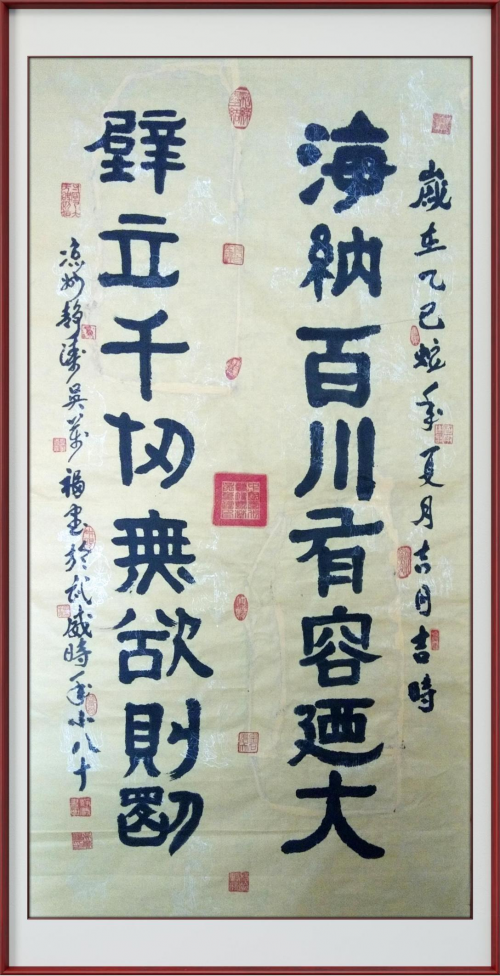 歲在乙巳蛇年夏月吉日吉時
海納百川有容廼大
壁立千仞無欲則剛
凉州靜濤吳萬福書於武威時年小八十